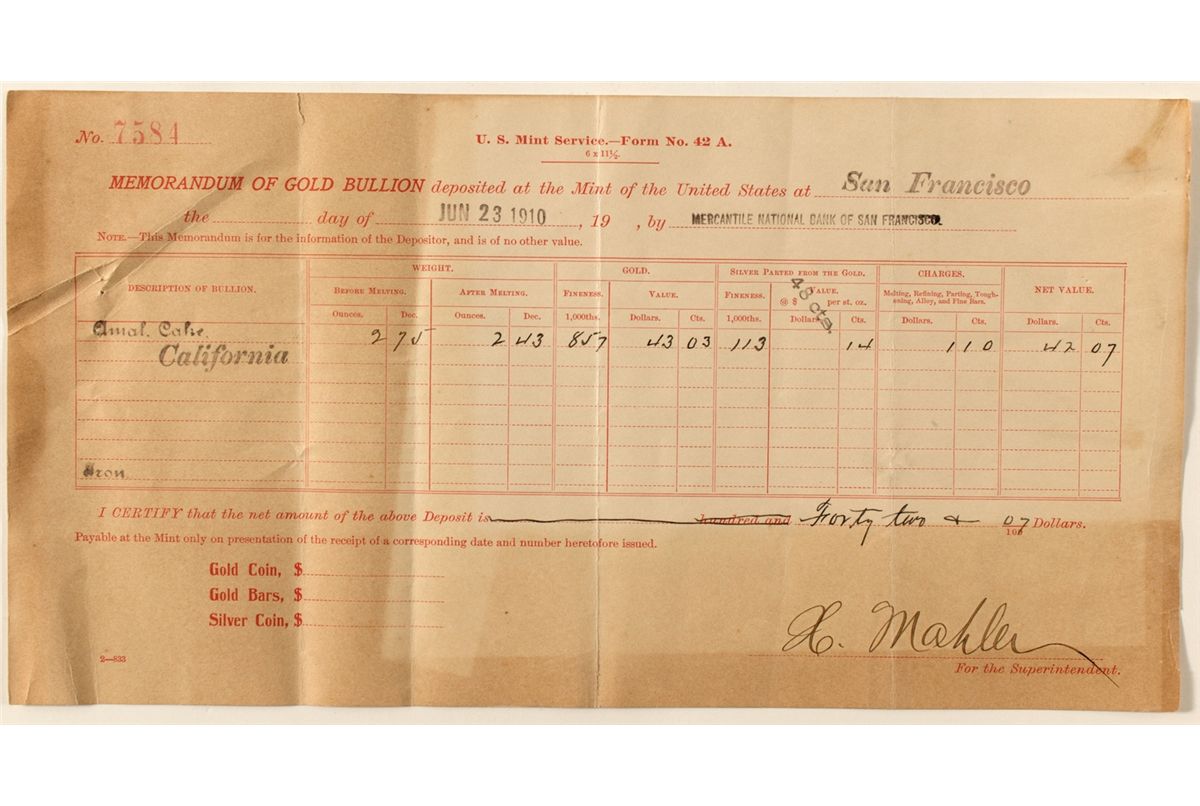 No. 7584
U. S. Mint Service.—Form No. 42 A.
6 x 11½.
MEMORANDUM OF GOLD BULLION deposited at the Mint of the United States at San Francisco
the day of JUN 23 1910, 19 , by MERCANTILE NATIONAL BANK OF SAN FRANCISCO.
NOTE.—This Memorandum is for the information of the Depositor, and is of no other value.
DESCRIPTION OF BULLION. WEIGHT. GOLD. SILVER PARTED FROM THE GOLD. CHARGES. NET VALUE.
BEFORE MELTING. AFTER MELTING. FINENESS. VALUE. FINENESS. VALUE. Melting, Refining, Parting, Tough-
@ $ 48 cts. per st. oz. ening, Alloy, and Fine Bars.
Ounces. Dec. Ounces. Dec. 1,000ths. Dollars. Cts. 1,000ths. Dollars. Cts. Dollars. Cts. Dollars. Cts.
Amal. Cake. 2 75 2 43 857 43 03 113 14 1 10 42 07
California
Iron
I CERTIFY that the net amount of the above Deposit is hundred and Forty two & 07/100 Dollars.
Payable at the Mint only on presentation of the receipt of a corresponding date and number heretofore issued.
Gold Coin, $
Gold Bars, $
Silver Coin, $
Mahler
2—833
For the Superintendent.